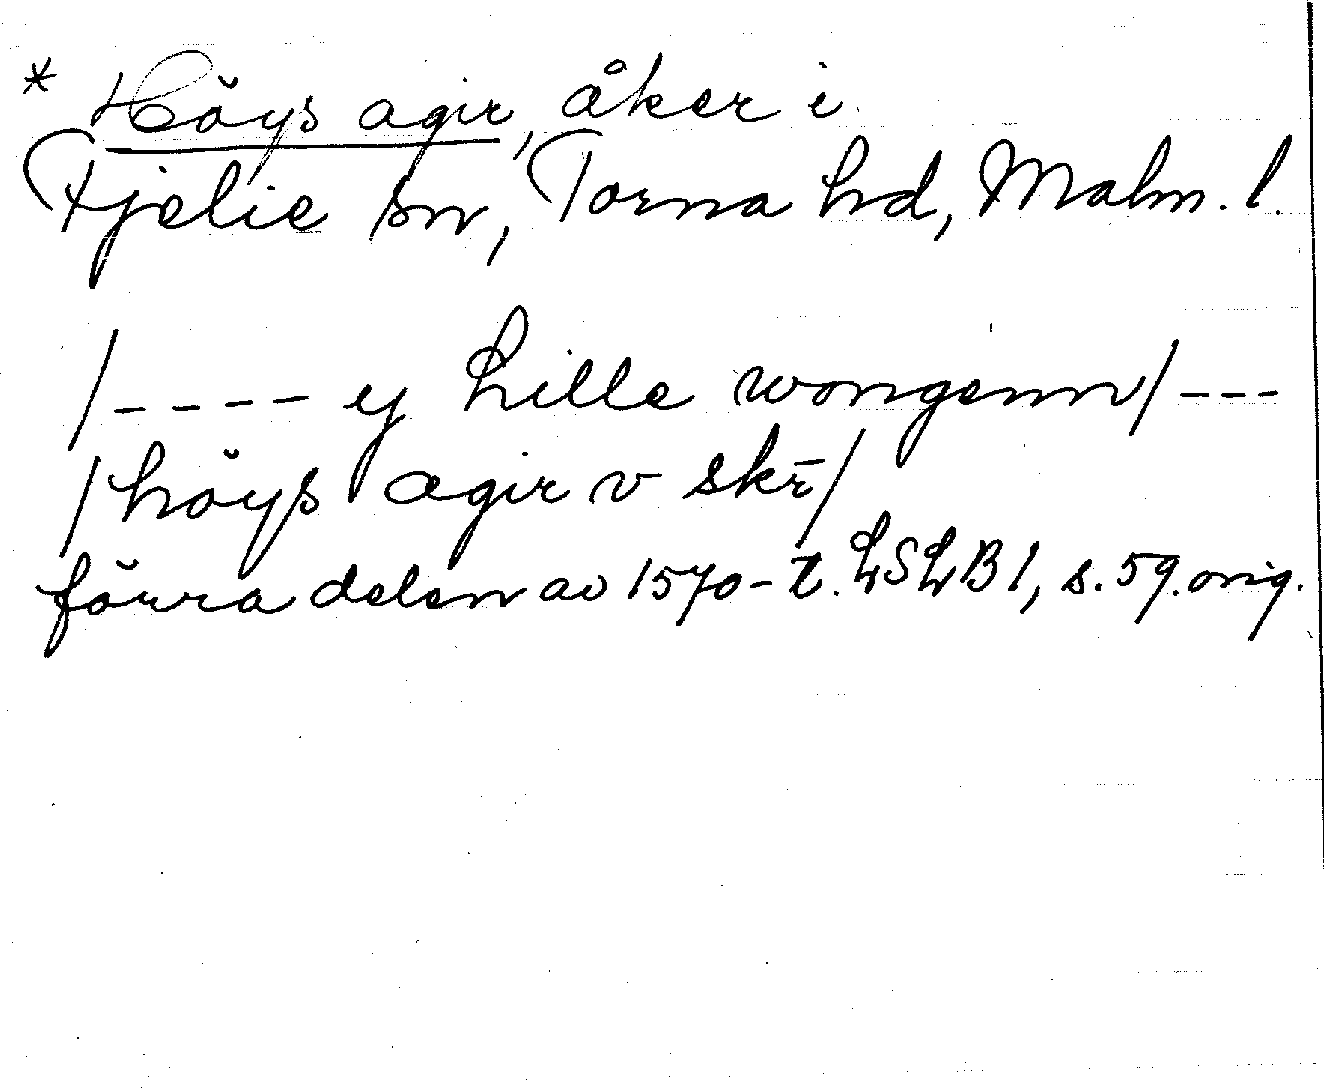 * Höys agir, åker i
Fjelie sn, Torna hd, Malm. l.
/ - - - - ej hille wongenn / - - -
/ höys agir v skr̄ /
förra delen av 1570-t. LSLB 1, s. 59. orig.